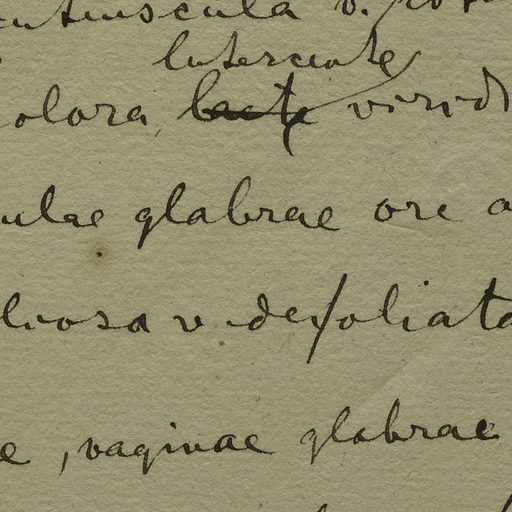 lutescente
olora, laete virid
ulae glabrae ore a
liosa v. defoliata
e, vaginae glabrae